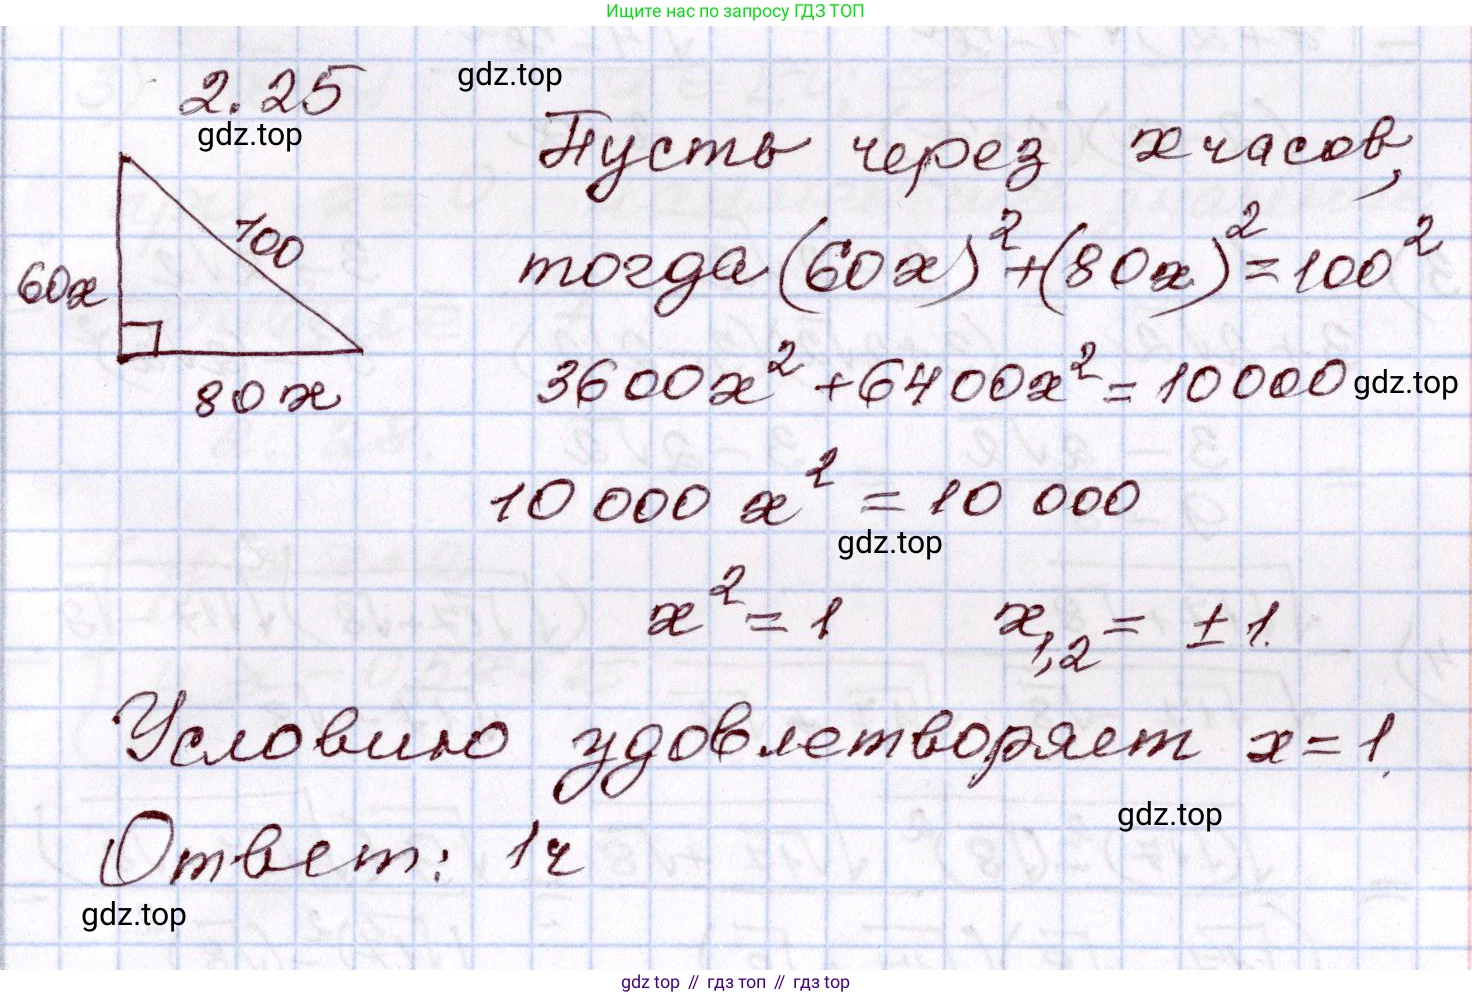 Ищите нас по запросу ГДЗ ТОП
2.25
gdz.top
gdz.top
Пусть через x часов,
60x
100
80x
тогда (60x)²+(80x)²=100²
3600x²+6400x²=10000
gdz.top
10 000 x² = 10 000
gdz.top
x² = 1
x₁,₂ = ±1.
Условию удовлетворяет x=1.
gdz.top
Ответ: 1ч
gdz.top
gdz top // гдз топ // gdz top